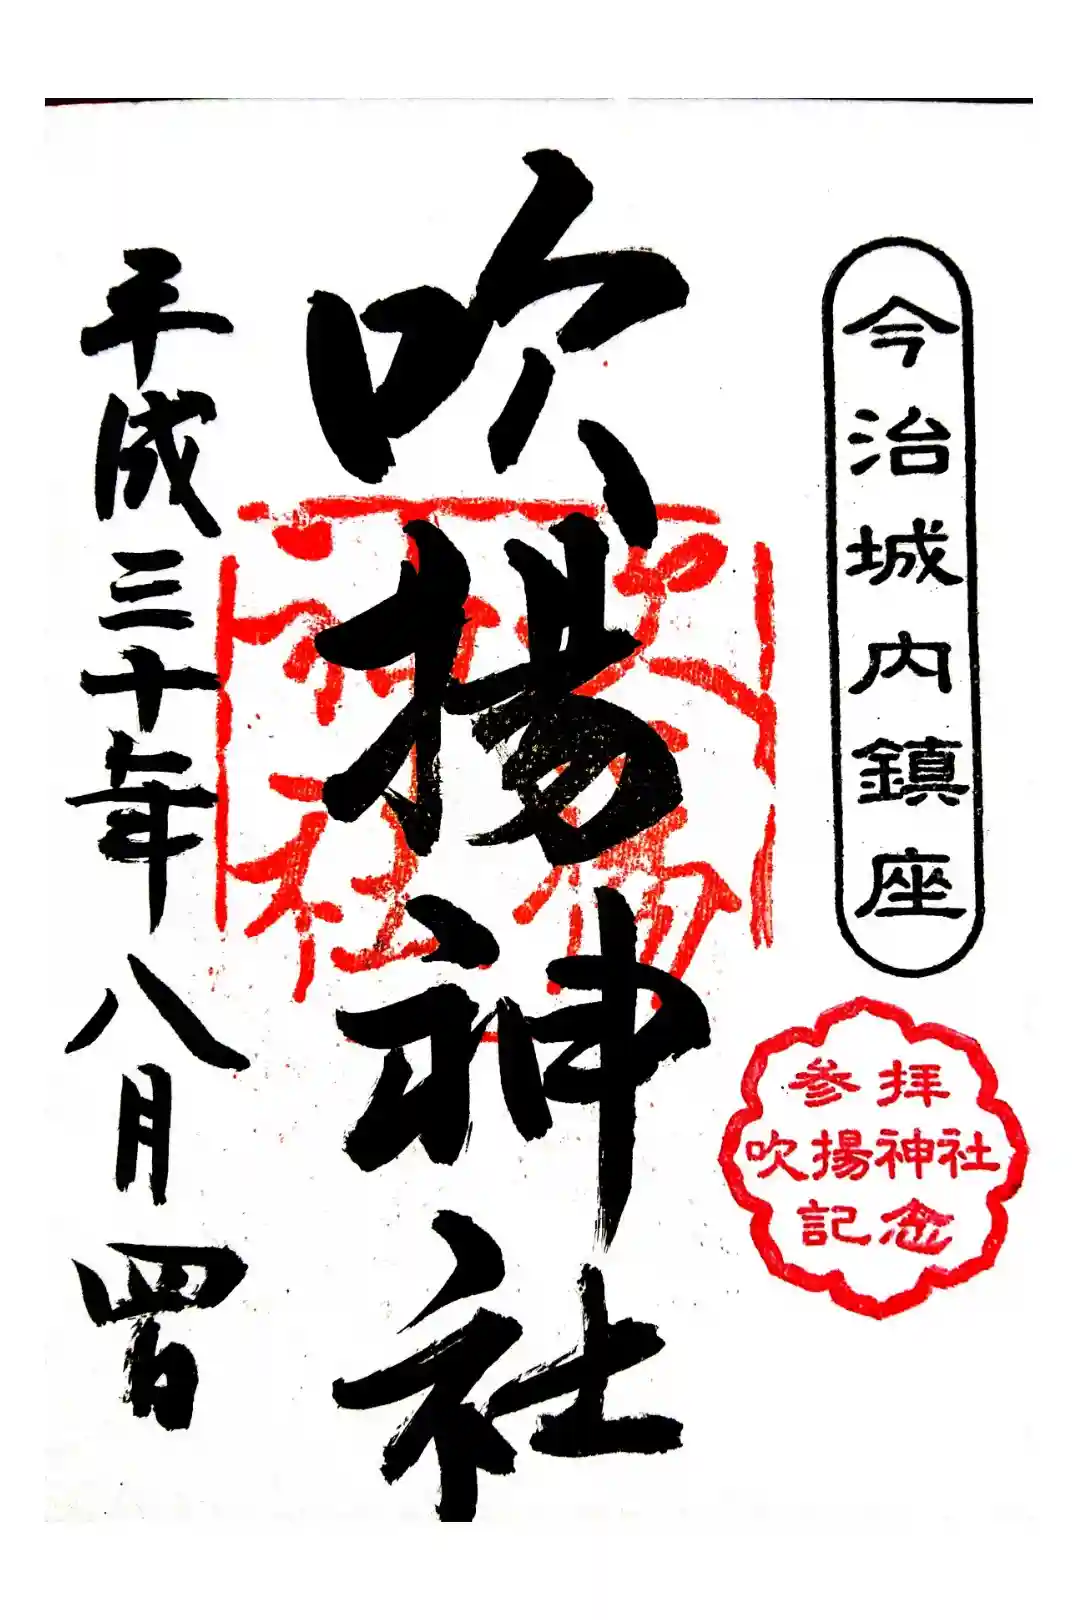 今治城内鎮座
参拝
吹揚神社
記念
吹揚神社
平成三十年八月四日